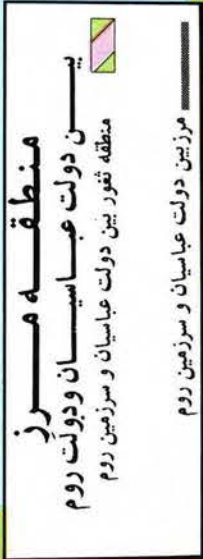 منطقه مرز
بین دولت عباسیان ودولت روم
منطقه ثغور بین دولت عباسیان و سرزمین روم
مرزبین دولت عباسیان و سرزمین روم